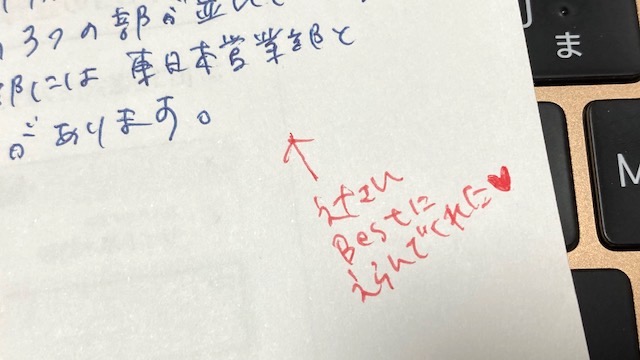 3つの部が並んで
部には 東日本営業部と
があります。
Bestに
えらんでくれた♥
ま
M